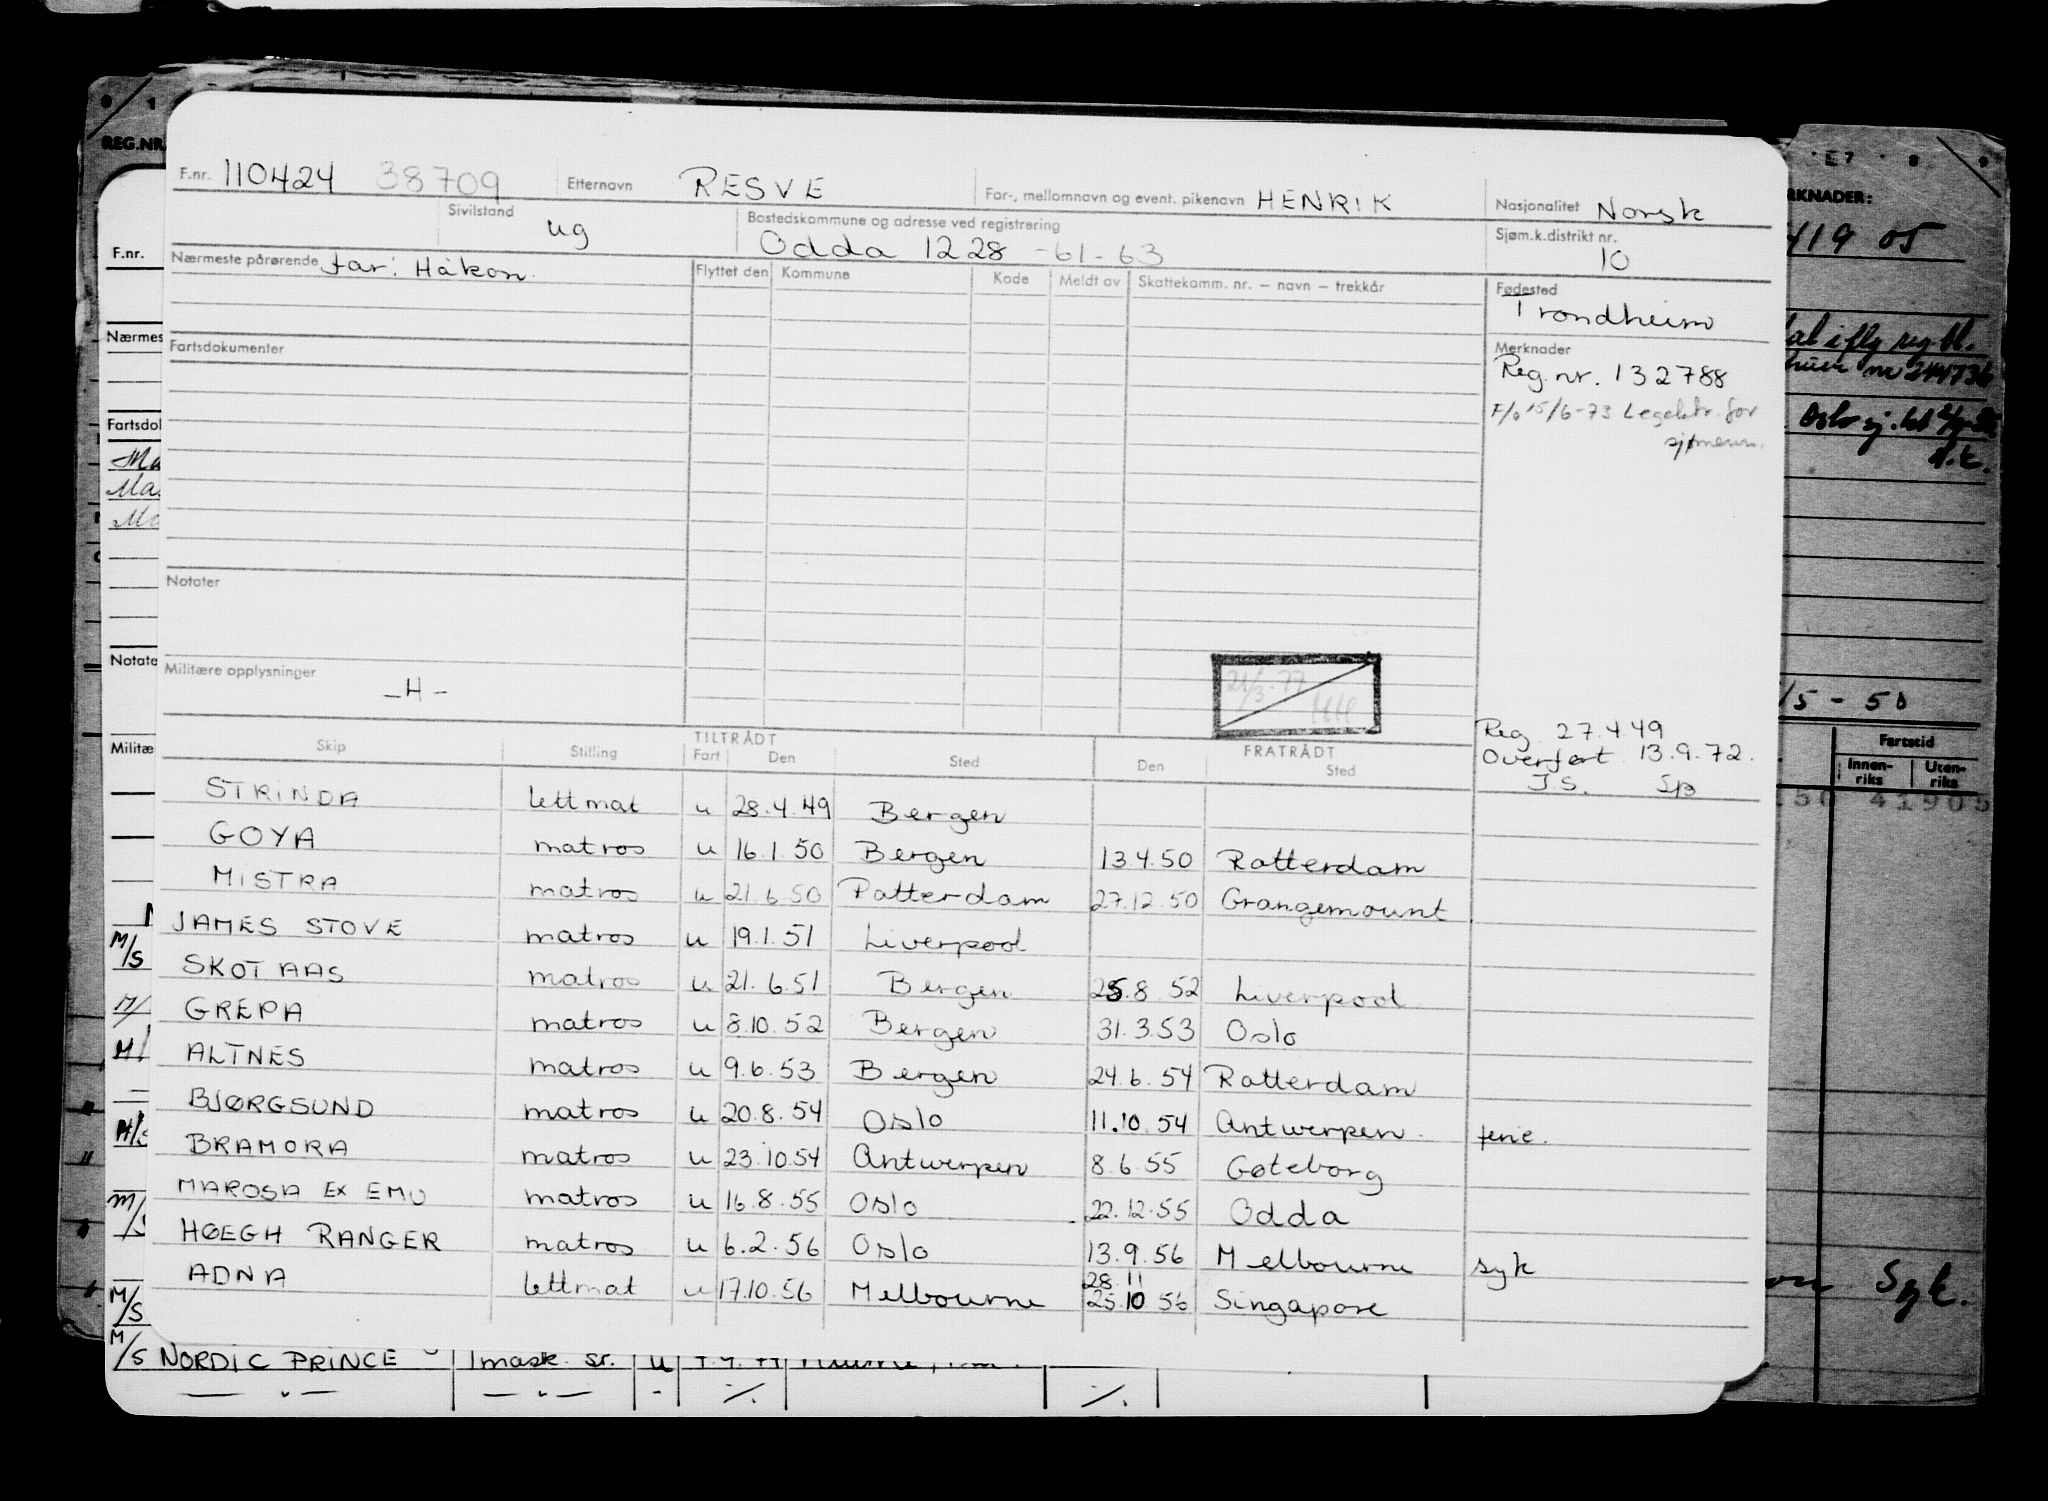 F.nr. 110424 38709 Etternavn RESVE For-, mellomnavn og event. pikenavn HENRIK Nasjonalitet Norsk
Sivilstand ug Bostedskommune og adresse ved registrering Odda 1228 -61-63 Sjøm.k.distrikt nr. 10
Nærmeste pårørende far: Håkon. Flyttet den Kommune Kode Meldt av Skattekomm. nr. – navn – trekkår Fødested
Trondheim
Fartsdokumenter Merknader
Reg. nr. 132788
F/o 15/6-73 Legektr. for
sjømenn.
Notater
Militære opplysninger -H-
21/3-77
HH
Reg. 27.4.49
Overført 13.9.72.
J.S.
Skip Stilling TILTRÅDT Fart Den Sted FRATRÅDT Den Sted
STRINDA lettmat u 28.4.49 Bergen
GOYA matros u 16.1.50 Bergen 13.4.50 Rotterdam
MISTRA matros u 21.6.50 Rotterdam 27.12.50 Grangemount
JAMES STOVE matros u 19.1.51 Liverpool
SKOTAAS matros u 21.6.51 Bergen 25.8.52 Liverpool
GREPA matros u 8.10.52 Bergen 31.3.53 Oslo
ALTNES matros u 9.6.53 Bergen 24.6.54 Rotterdam
BJØRGSUND matros u 20.8.54 Oslo 11.10.54 Antwerpen. ferie.
BRAMORA matros u 23.10.54 Antwerpen 8.6.55 Gøteborg
MAROSA EX EMU matros u 16.8.55 Oslo 22.12.55 Odda
HØEGH RANGER matros u 6.2.56 Oslo 13.9.56 Melbourne syk
28.11
ADNA lettmat u 17.10.56 Melbourne 25.10 56 Singapore
M/S NORDIC PRINCE 1mask. sr. u
REG.NR.
F.nr.
Nærmes
Fartsdol
Notate
Militæ
M/S
M/S
E7
RKNADER:
419 05
/5 - 50
Fartstid
Innen-riks Uten-riks
41905
Syk.